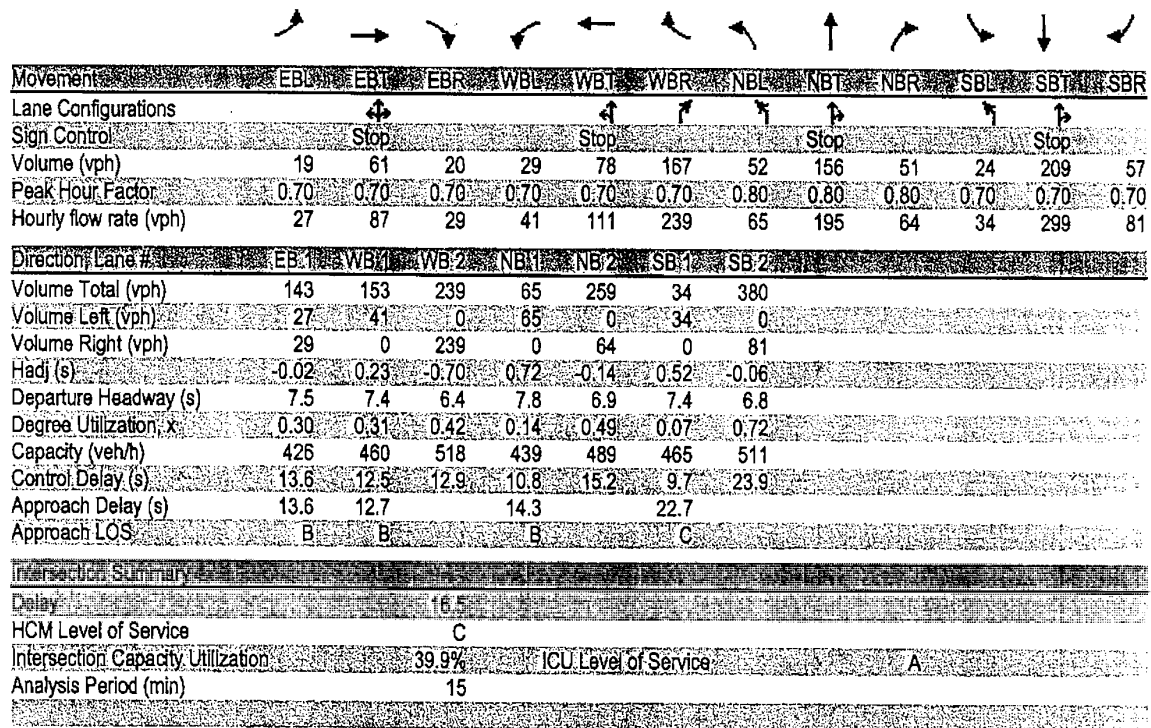 Movement EBL EBT EBR WBL WBT WBR NBL NBT NBR SBL SBT SBR
Lane Configurations
Sign Control Stop Stop Stop Stop
Volume (vph) 19 61 20 29 78 167 52 156 51 24 209 57
Peak Hour Factor 0.70 0.70 0.70 0.70 0.70 0.70 0.80 0.80 0.80 0.70 0.70 0.70
Hourly flow rate (vph) 27 87 29 41 111 239 65 195 64 34 299 81
Direction, Lane # EB 1 WB 1 WB 2 NB 1 NB 2 SB 1 SB 2
Volume Total (vph) 143 153 239 65 259 34 380
Volume Left (vph) 27 41 0 65 0 34 0
Volume Right (vph) 29 0 239 0 64 0 81
Hadj (s) -0.02 0.23 -0.70 0.72 -0.14 0.52 -0.06
Departure Headway (s) 7.5 7.4 6.4 7.8 6.9 7.4 6.8
Degree Utilization, x 0.30 0.31 0.42 0.14 0.49 0.07 0.72
Capacity (veh/h) 426 460 518 439 489 465 511
Control Delay (s) 13.6 12.5 12.9 10.8 15.2 9.7 23.9
Approach Delay (s) 13.6 12.7 14.3 22.7
Approach LOS B B B C
Intersection Summary
Delay 16.5
HCM Level of Service C
Intersection Capacity Utilization 39.9% ICU Level of Service A
Analysis Period (min) 15